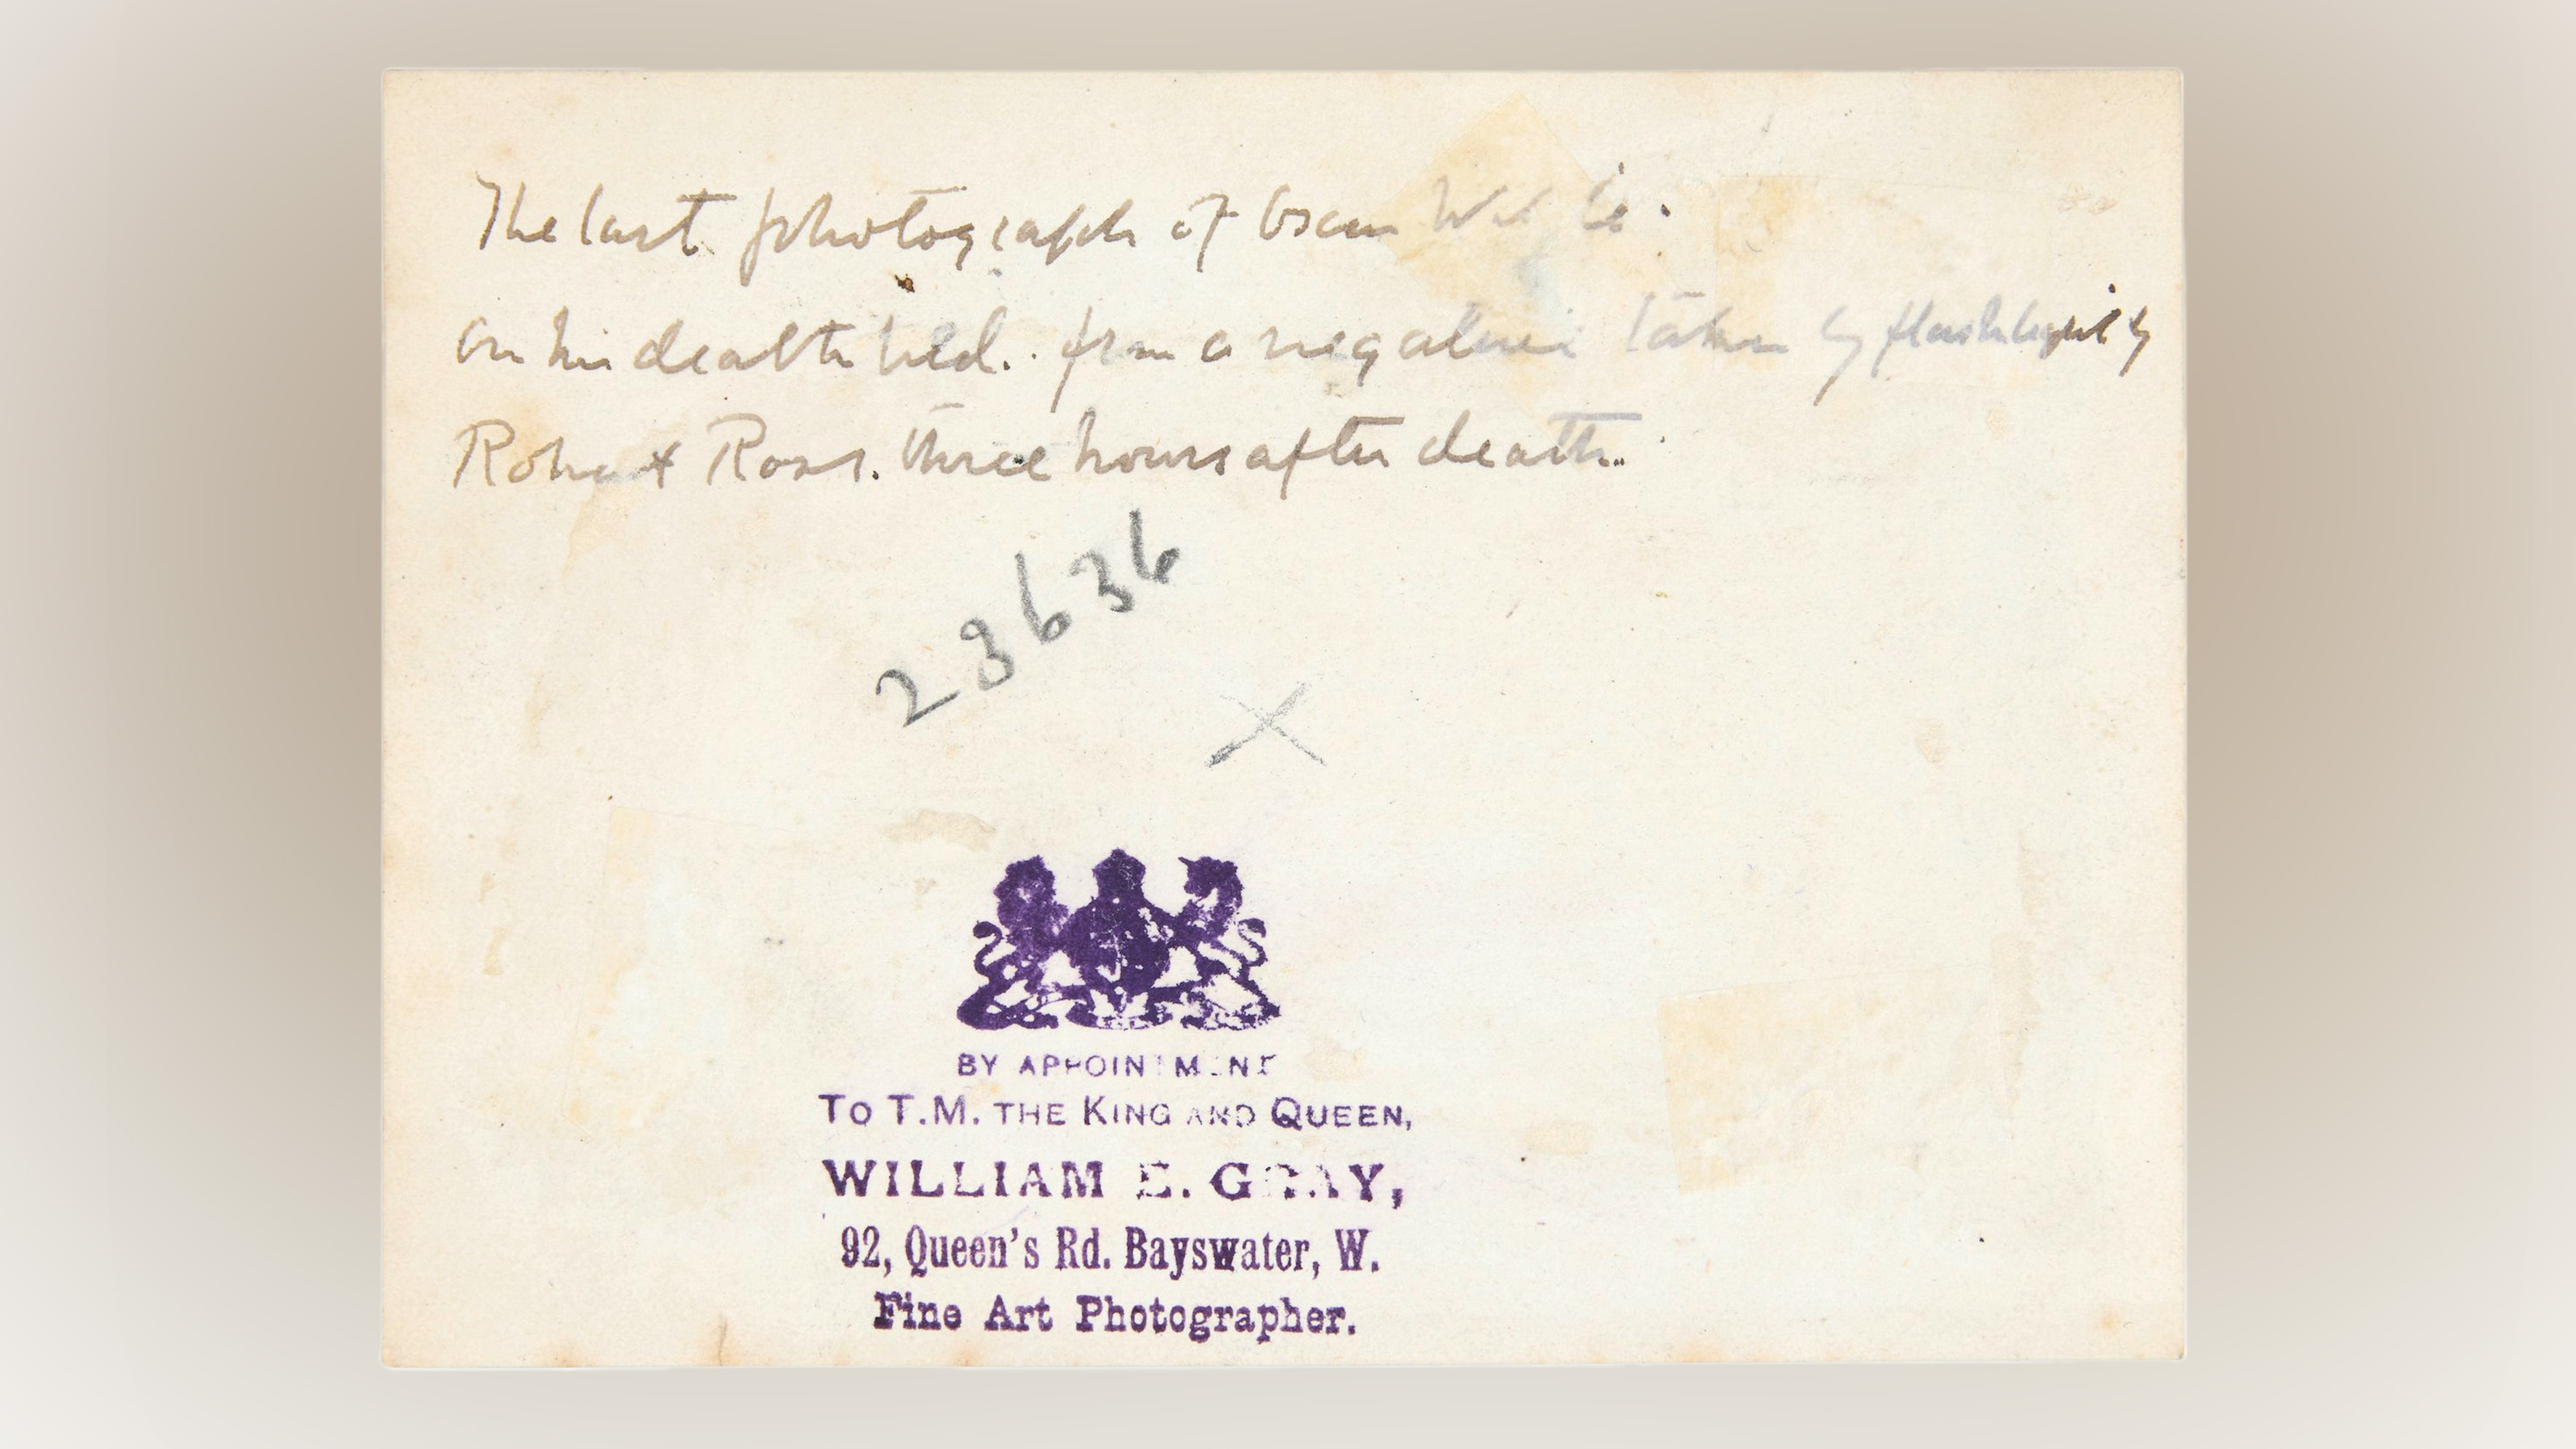 The last photograph of Oscar Wilde.
on his death bed. from a negative taken by flashlight by
Robert Ross. three hours after death.
23636
X
BY APPOINTMENT
TO T.M. THE KING AND QUEEN,
WILLIAM E. GRAY,
92, Queen's Rd. Bayswater, W.
Fine Art Photographer.